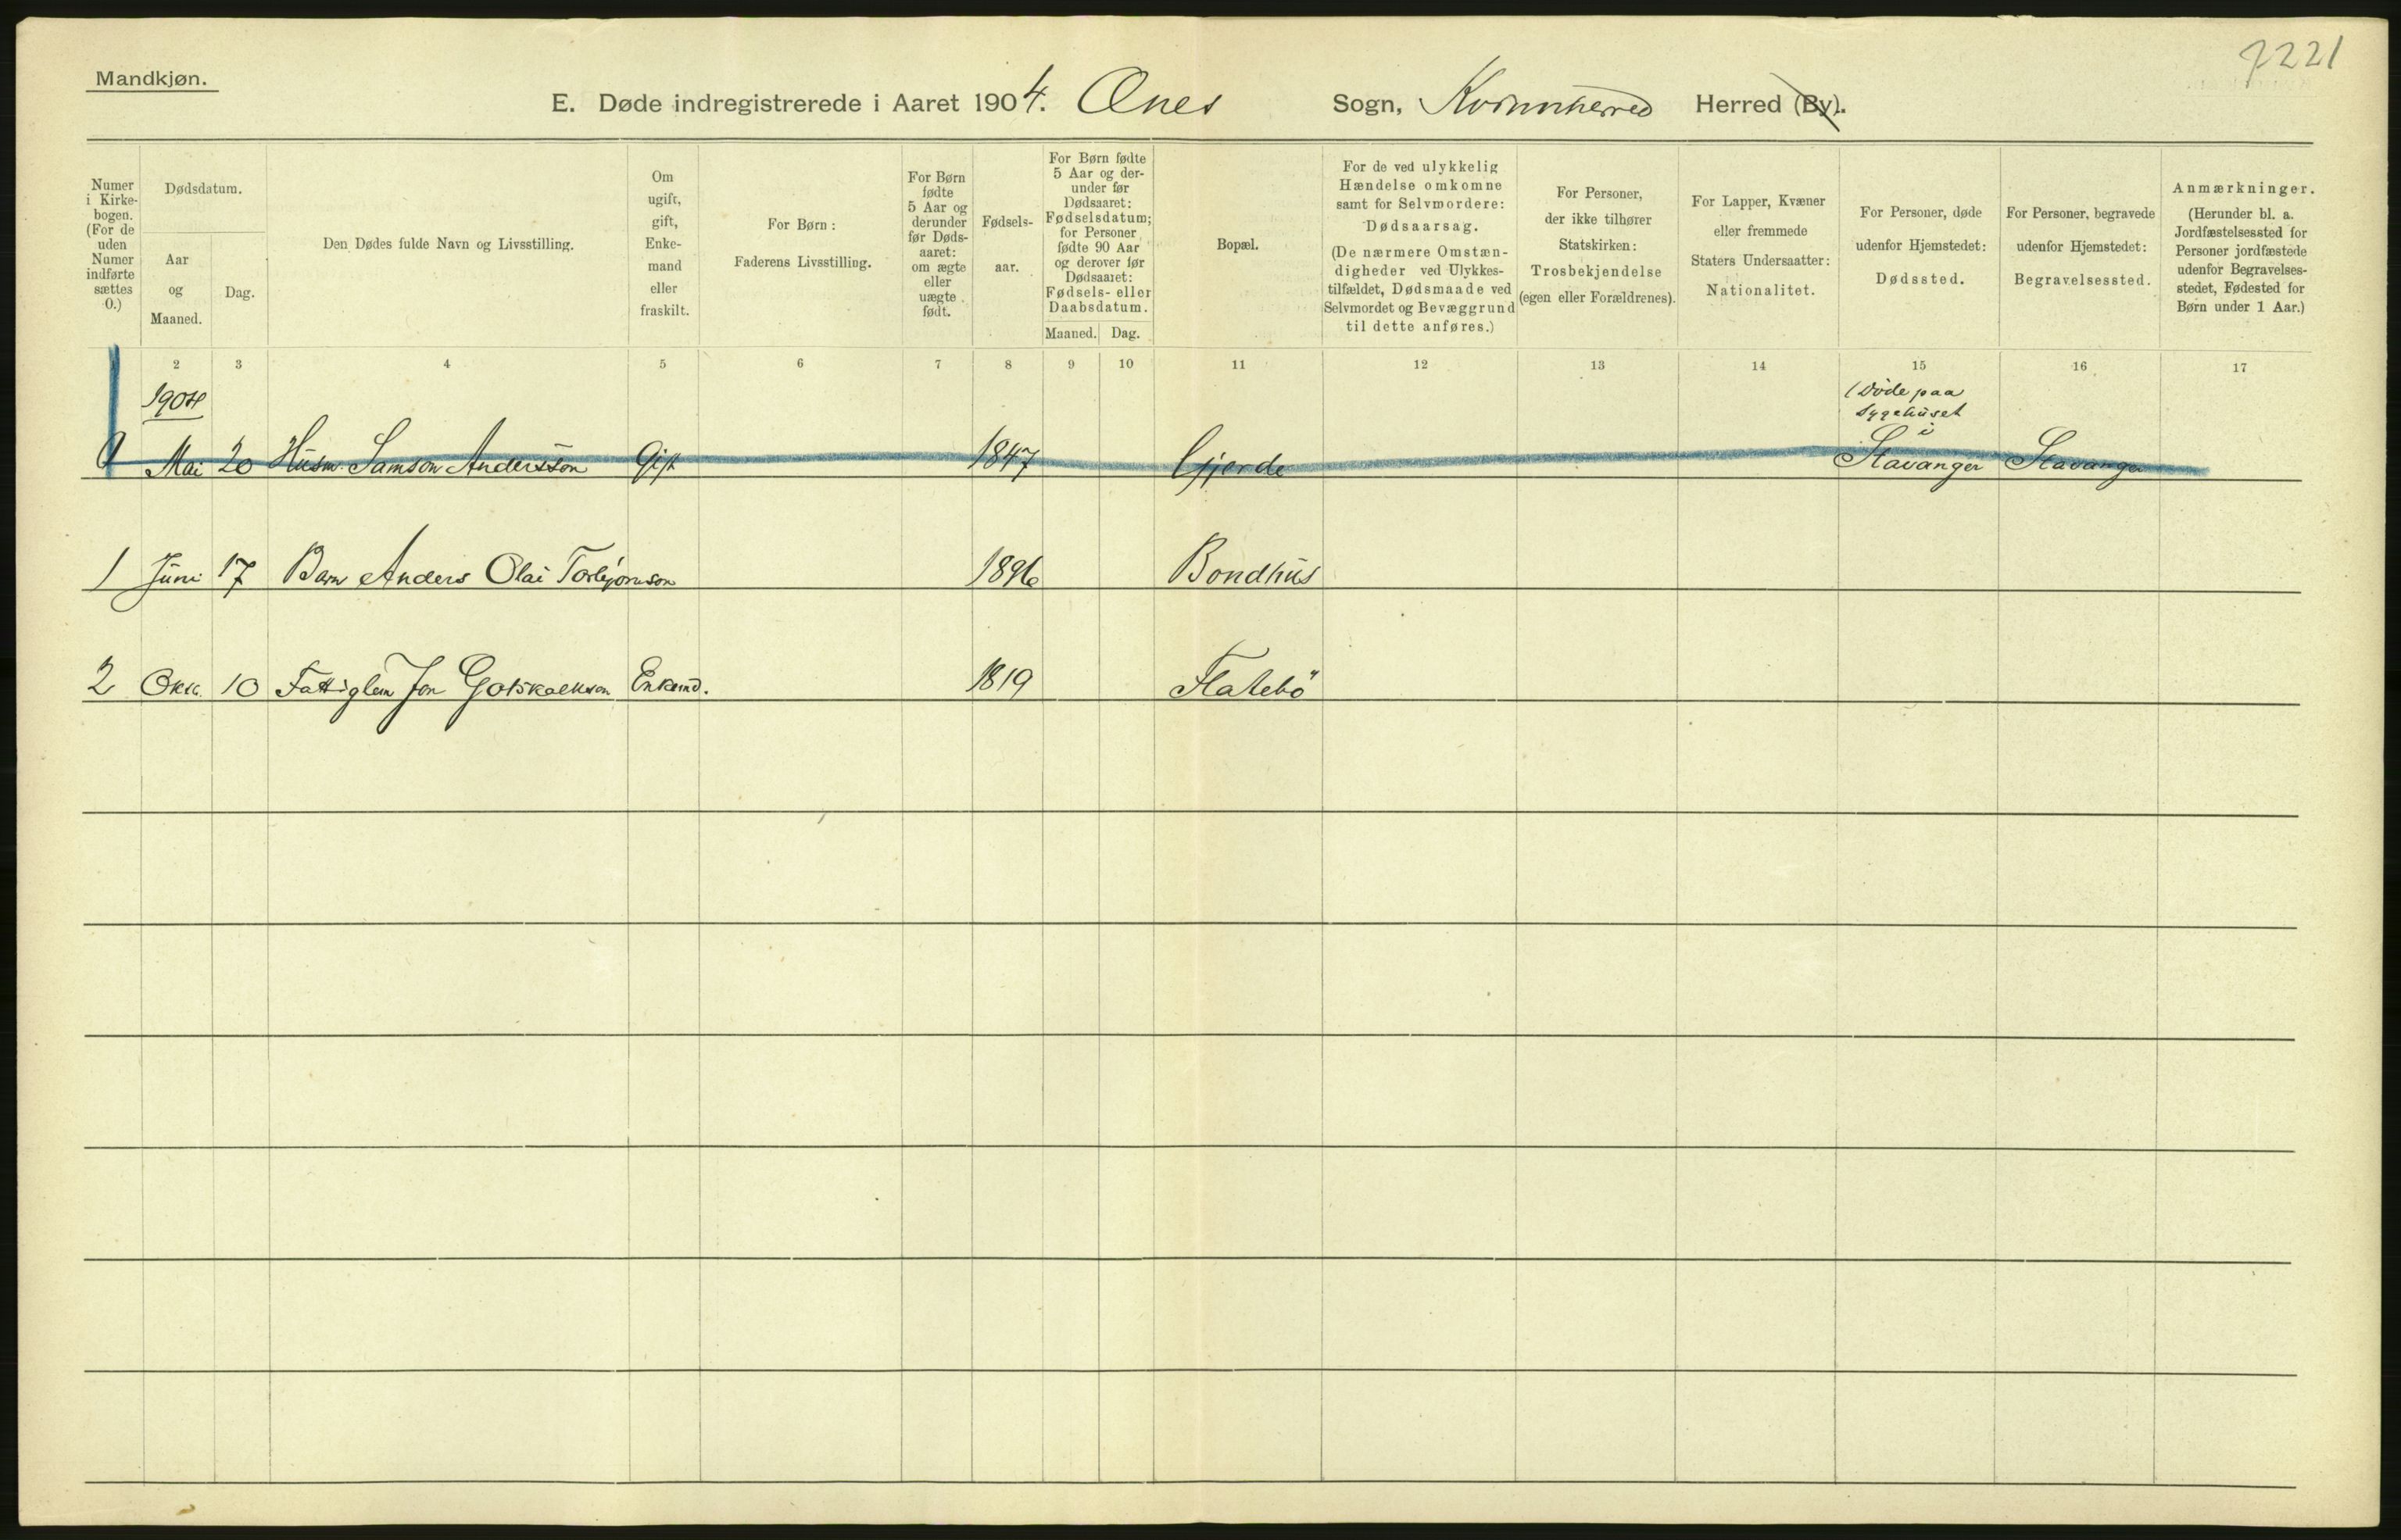 7221
Mandkjøn.
E. Døde indregistrerede i Aaret 1904. Ænes Sogn, Kvinnherred Herred (By).
Numer i Kirke-bogen. (For de uden Numer indførte sættes 0.)
Dødsdatum.
Aar og Maaned.
Dag.
Den Dødes fulde Navn og Livsstilling.
Om ugift, gift, Enke-mand eller fraskilt.
For Børn: Faderens Livsstilling.
For Børn fødte 5 Aar og derunder før Døds-aaret: om ægte eller uægte født.
Fødsels-aar.
For Børn fødte 5 Aar og der-under før Dødsaaret: Fødselsdatum; for Personer fødte 90 Aar og derover før Dødsaaret: Fødsels- eller Daabsdatum.
Maaned. Dag.
Bopæl.
For de ved ulykkelig Hændelse omkomne samt for Selvmordere: Dødsaarsag. (De nærmere Omstæn-digheder ved Ulykkes-tilfældet, Dødsmaade ved Selvmordet og Bevæggrund til dette anføres.)
For Personer, der ikke tilhører Statskirken: Trosbekjendelse (egen eller Forældrenes).
For Lapper, Kvæner eller fremmede Staters Undersaatter: Nationalitet.
For Personer, døde udenfor Hjemstedet: Dødssted.
For Personer, begravede udenfor Hjemstedet: Begravelsessted.
Anmærkninger. (Herunder bl. a. Jordfæstelsessted for Personer jordfæstede udenfor Begravelses-stedet, Fødested for Børn under 1 Aar.)
2 3 4 5 6 7 8 9 10 11 12 13 14 15 16 17
1904
(Døde paa
Sygehuset
i
Mai 20 Husm. Samson Andersson Gift 1847 Gjerde Stavanger Stavanger
1 Juni 17 Barn Anders Olai Torbjørnson 1896 Bondhus
2 Okt. 10 Fattiglem Jon Gotskalkson Enkemd. 1819 Flatebö